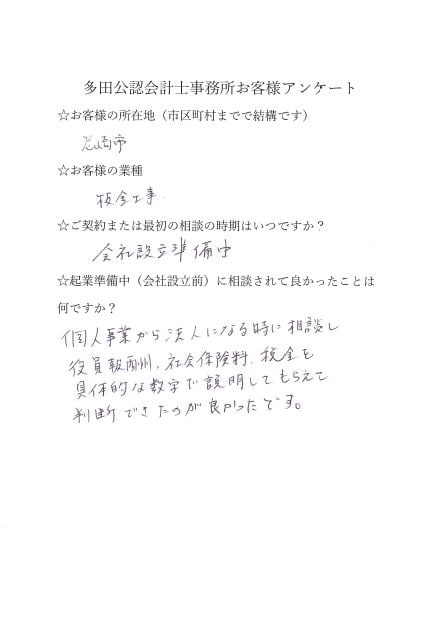 多田公認会計士事務所お客様アンケート
☆お客様の所在地（市区町村までで結構です）
尼崎市
☆お客様の業種
板金工事
☆ご契約または最初の相談の時期はいつですか？
会社設立準備中
☆起業準備中（会社設立前）に相談されて良かったことは
何ですか？
個人事業から法人になる時に相談し
役員報酬、社会保険料、税金を
具体的な数字で説明してもらえて
判断できたのが良かったです。